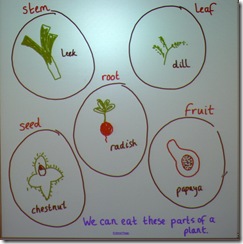 stem
leaf
leek
dill
root
radish
seed
fruit
chestnut
papaya
We can eat these parts of a
plant.